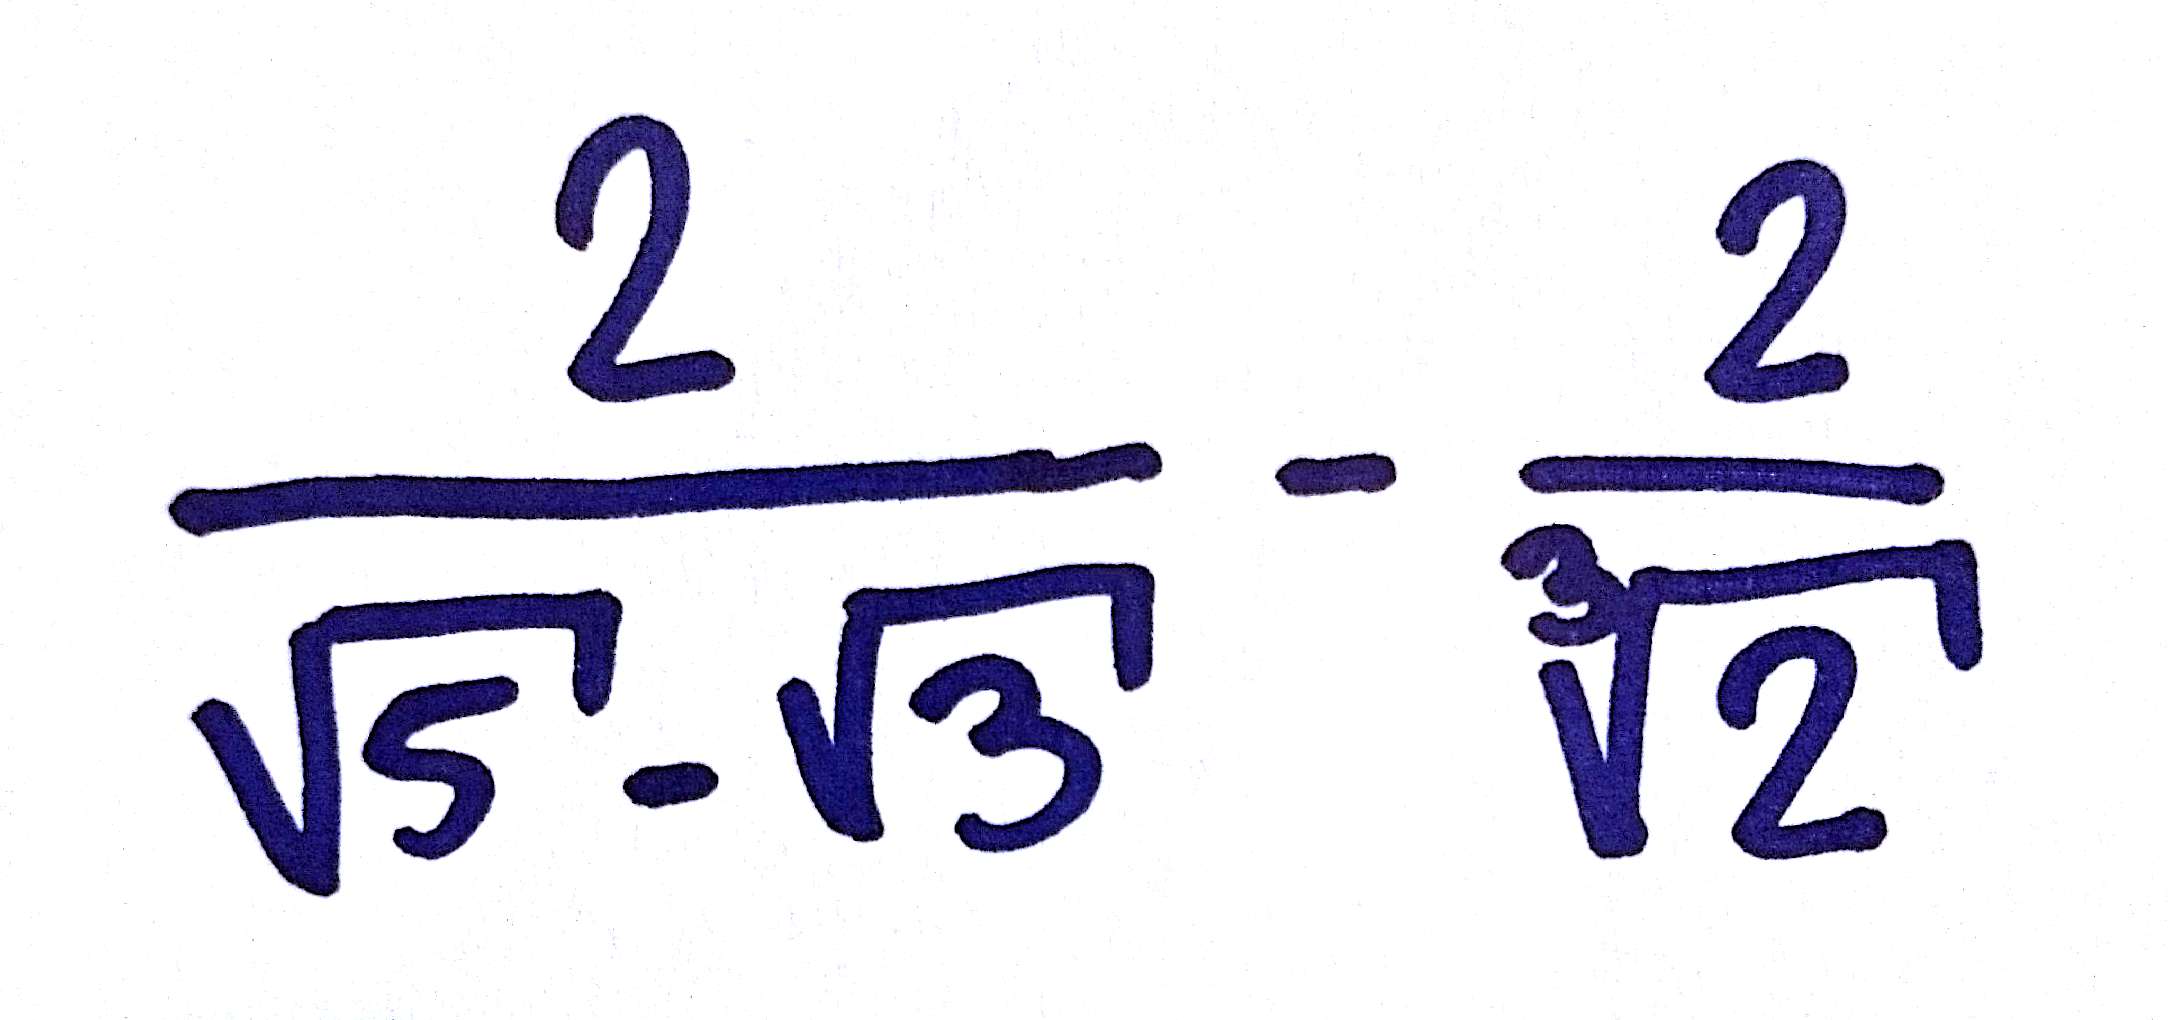 \frac{2}{\sqrt{5}-\sqrt{3}} - \frac{2}{\sqrt[3]{2}}